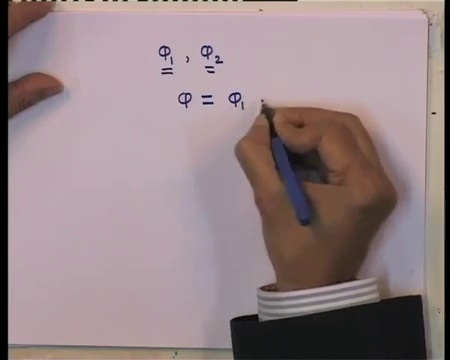 φ₁ , φ₂
φ = φ₁